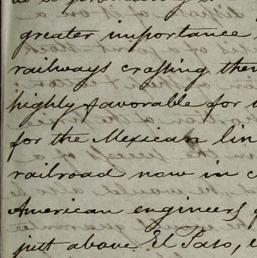 greater importance
railways crossing the
highly favorable for
for the Mexican lin
railroad now in c
American engineers
just above El Paso,